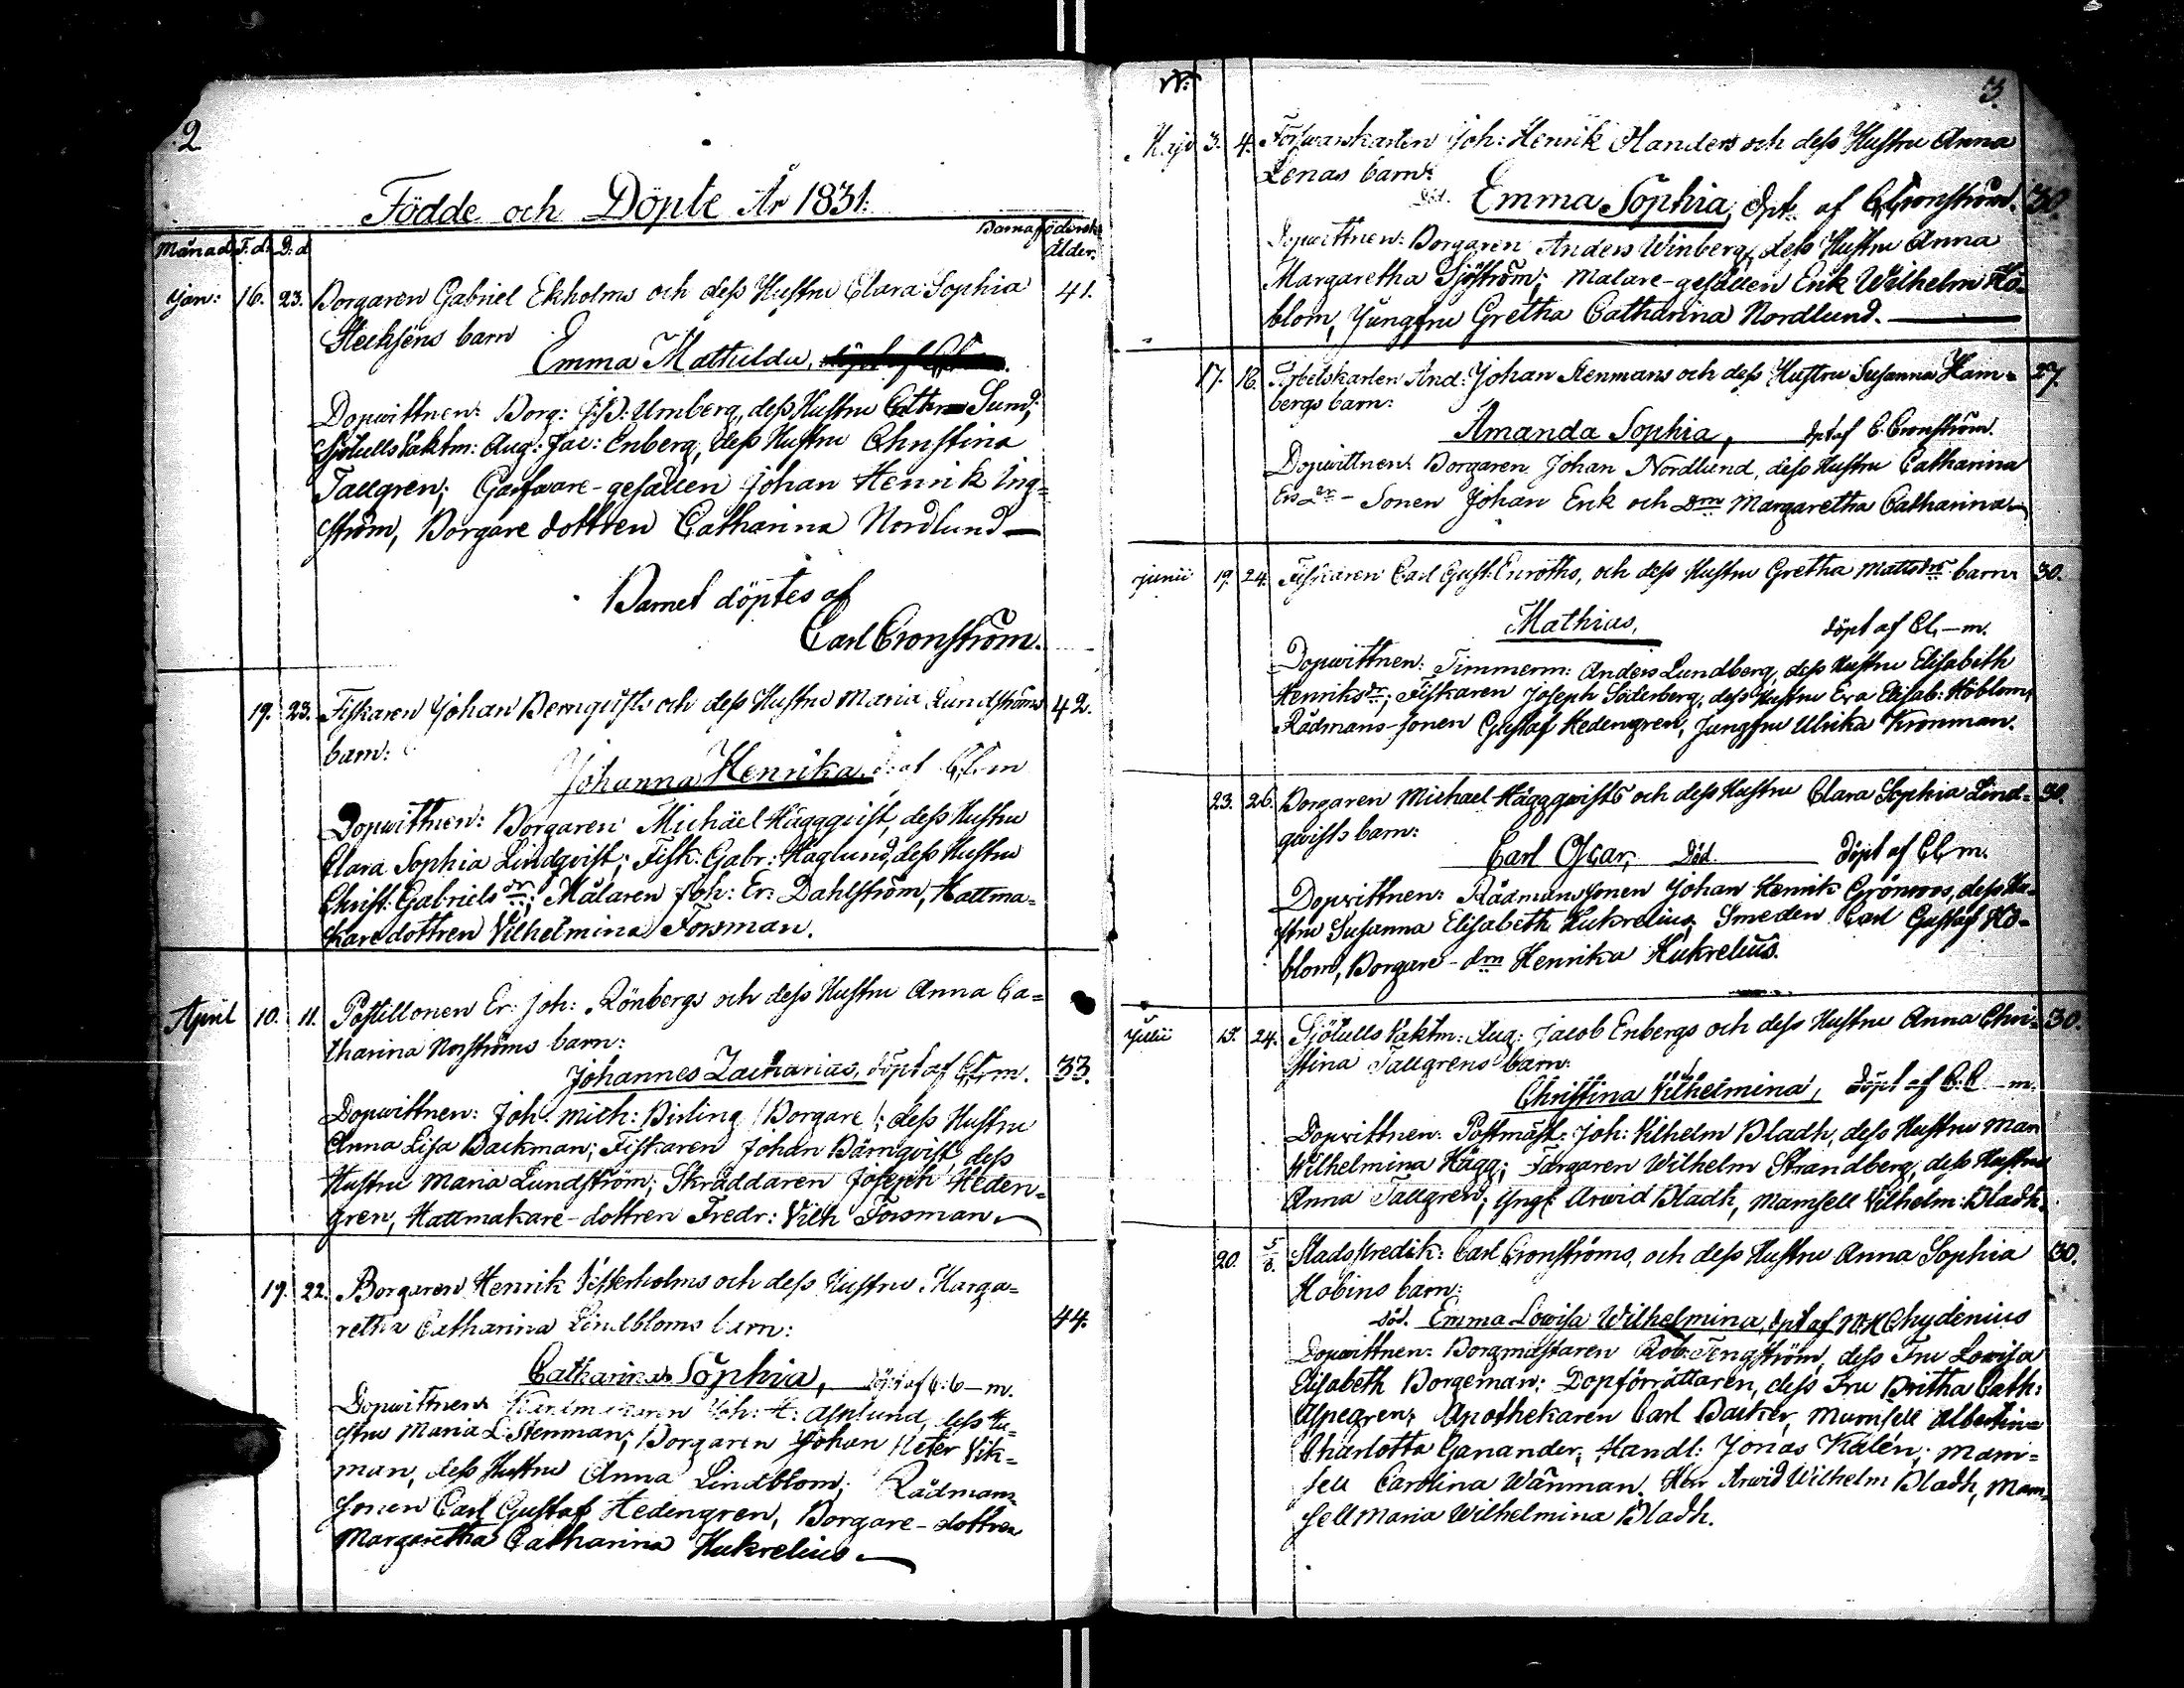 2
Födde och Döpte År 1831.
Månad F.d. D.d Barnaföderskans
Ålder.
Jan: 16. 23. Borgaren Gabriel Ekholms och dess Hustru Clara Sophia 41.
barn
Emma Mathilda,
Dopwittnen: Borg: Urnberg, dess Hustru Sund;
Sjötulls Vaktm: Aug: Jac: Enberg, dess Hustru Christina
Tallgren; Garfvare-gesällen Johan Henrik Ing=
ström, Borgare dottren Catharina Nordlund—
Barnet döptes af
Carl Cronström.
19. 23. Fiskaren Johan Bernqvists och dess Hustru Maria Lundströms 42.
barn:
Johanna Henrika,
Dopwittnen: Borgaren Michäel Häggqvist, dess Hustru
Clara Sophia Lindqvist; Fisk: Gabr: Haglund, dess Hustru
Christ: Gabrielsdr; Målaren Joh: Er: Dahlström, Hattma=
karedottren Vilhelmina Forsman.
April 10. 11. Postillonen Er: Joh: Rönbergs och dess Hustru Anna Ca=
tharina Norströms barn:
Johannes Zacharias, döpt af C.C.m. 33.
Dopwittnen: Joh: Mich: Birling /:Borgare:/ dess Hustru
Anna Lisa Backman; Fiskaren Johan Bärnqvist, dess
Hustru Maria Lundström; Skräddaren Joseph Heden=
gren, Hattmakare-dottren Fredr: Vilh Forsman
19. 22. Borgaren Henrik Vesterholms och dess Hustru Marga=
retha Catharina Lindbloms barn: 44.
Catharina Sophia, döpt af C:C—m.
Dopwittnen: Joh: H: Asplund, dess Hu=
stru Maria L. Stenman; Borgaren Johan Peter Vik=
man, dess Hustru Anna Lindblom; Rådmans
sonen Carl Gustaf Hedengren, Borgare-dottren
Margaretha Catharina Hukrelius
3.
Maji 3. 4. Försvarskarlen Joh: Henrik Handers och dess Hustru Anna
Lenas barn:
död. Emma Sophia, dpt. af C. Cronström. 30.
Dopwittnen: Borgaren Anders Winberg, dess Hustru Anna
Margaretha Sjöström; Målare-gesällen Erik Wilhelm Hö=
blom, Jungfru Gretha Catharina Nordlund.
17. 18. And: Johan Stenmans och dess Hustru Susanna Ham= 27.
bergs barn:
Amanda Sophia, dpt af C. Cronström.
Dopwittnen: Borgaren Johan Nordlund, dess Hustru Catharina
Sonen Johan Erik och Dm Margaretha Catharina
Junii 19. 24. Fiskaren Carl Gust: Enroths, och dess Hustru Gretha Mattsdrs barn: 30.
Mathias, döpt af C.C,—m.
Dopwittnen: Timmerm: Anders Lundberg, dess Hustru Elisabeth
Henriksdr; Fiskaren Joseph Söderberg, dess Hustru Eva Elisab: Höblom;
Rådmans-sonen Gustaf Hedengren, Jungfru Ulrika Kronman.
23. 26. Borgaren Michael Häggqwists och dess Hustru Clara Sophia Lind= 30.
qwists barn:
Carl Oscar, Död. Döpt af C.C.m.
Dopwittnen: Rådmanssonen Johan Henrik Grönroos, dess Hu=
stru Susanna Elisabeth Hukrelius; Smeden Carl Gustaf Hö=
blom, Borgare-dm Henrika Hukrelius.
Julii 15. 24. Sjötulls Vaktm: Aug: Jacob Enbergs och dess Hustru Anna Chri= 30.
stina Tallgrens barn:
Christina Vilhelmina, Döpt af C:C—m.
Dopwittnen: Postmäst: Joh: Vilhelm Bladh, dess Hustru Mar
Wilhelmina Hägg; Färgaren Wilhelm Strandberg, dess Hustru
Anna Tallgren; Yngl: Arwid Bladh, Mamsell Vilhelm: Bladh.
20. 5/8. Stadspredik: Carl Cronströms, och dess Hustru Anna Sophia 30.
Hobins barn:
död. Emma Lowisa Wilhelmina, dpt af Chydenius
Dopwittnen: Borgmästaren Rob: Tengström, dess Fru Lowisa
Elisabeth Borgeman; Dopförrättaren, dess Fru Britha Cath:
Aspegren; Apothekaren Carl Backer, Mamsell Albertina
Charlotta Ganander; Handl: Jonas Kalén; Mam=
sell Carolina Wänman, Herr Arwid Wilhelm Bladh, Mam=
sell Maria Wilhelmina Bladh.